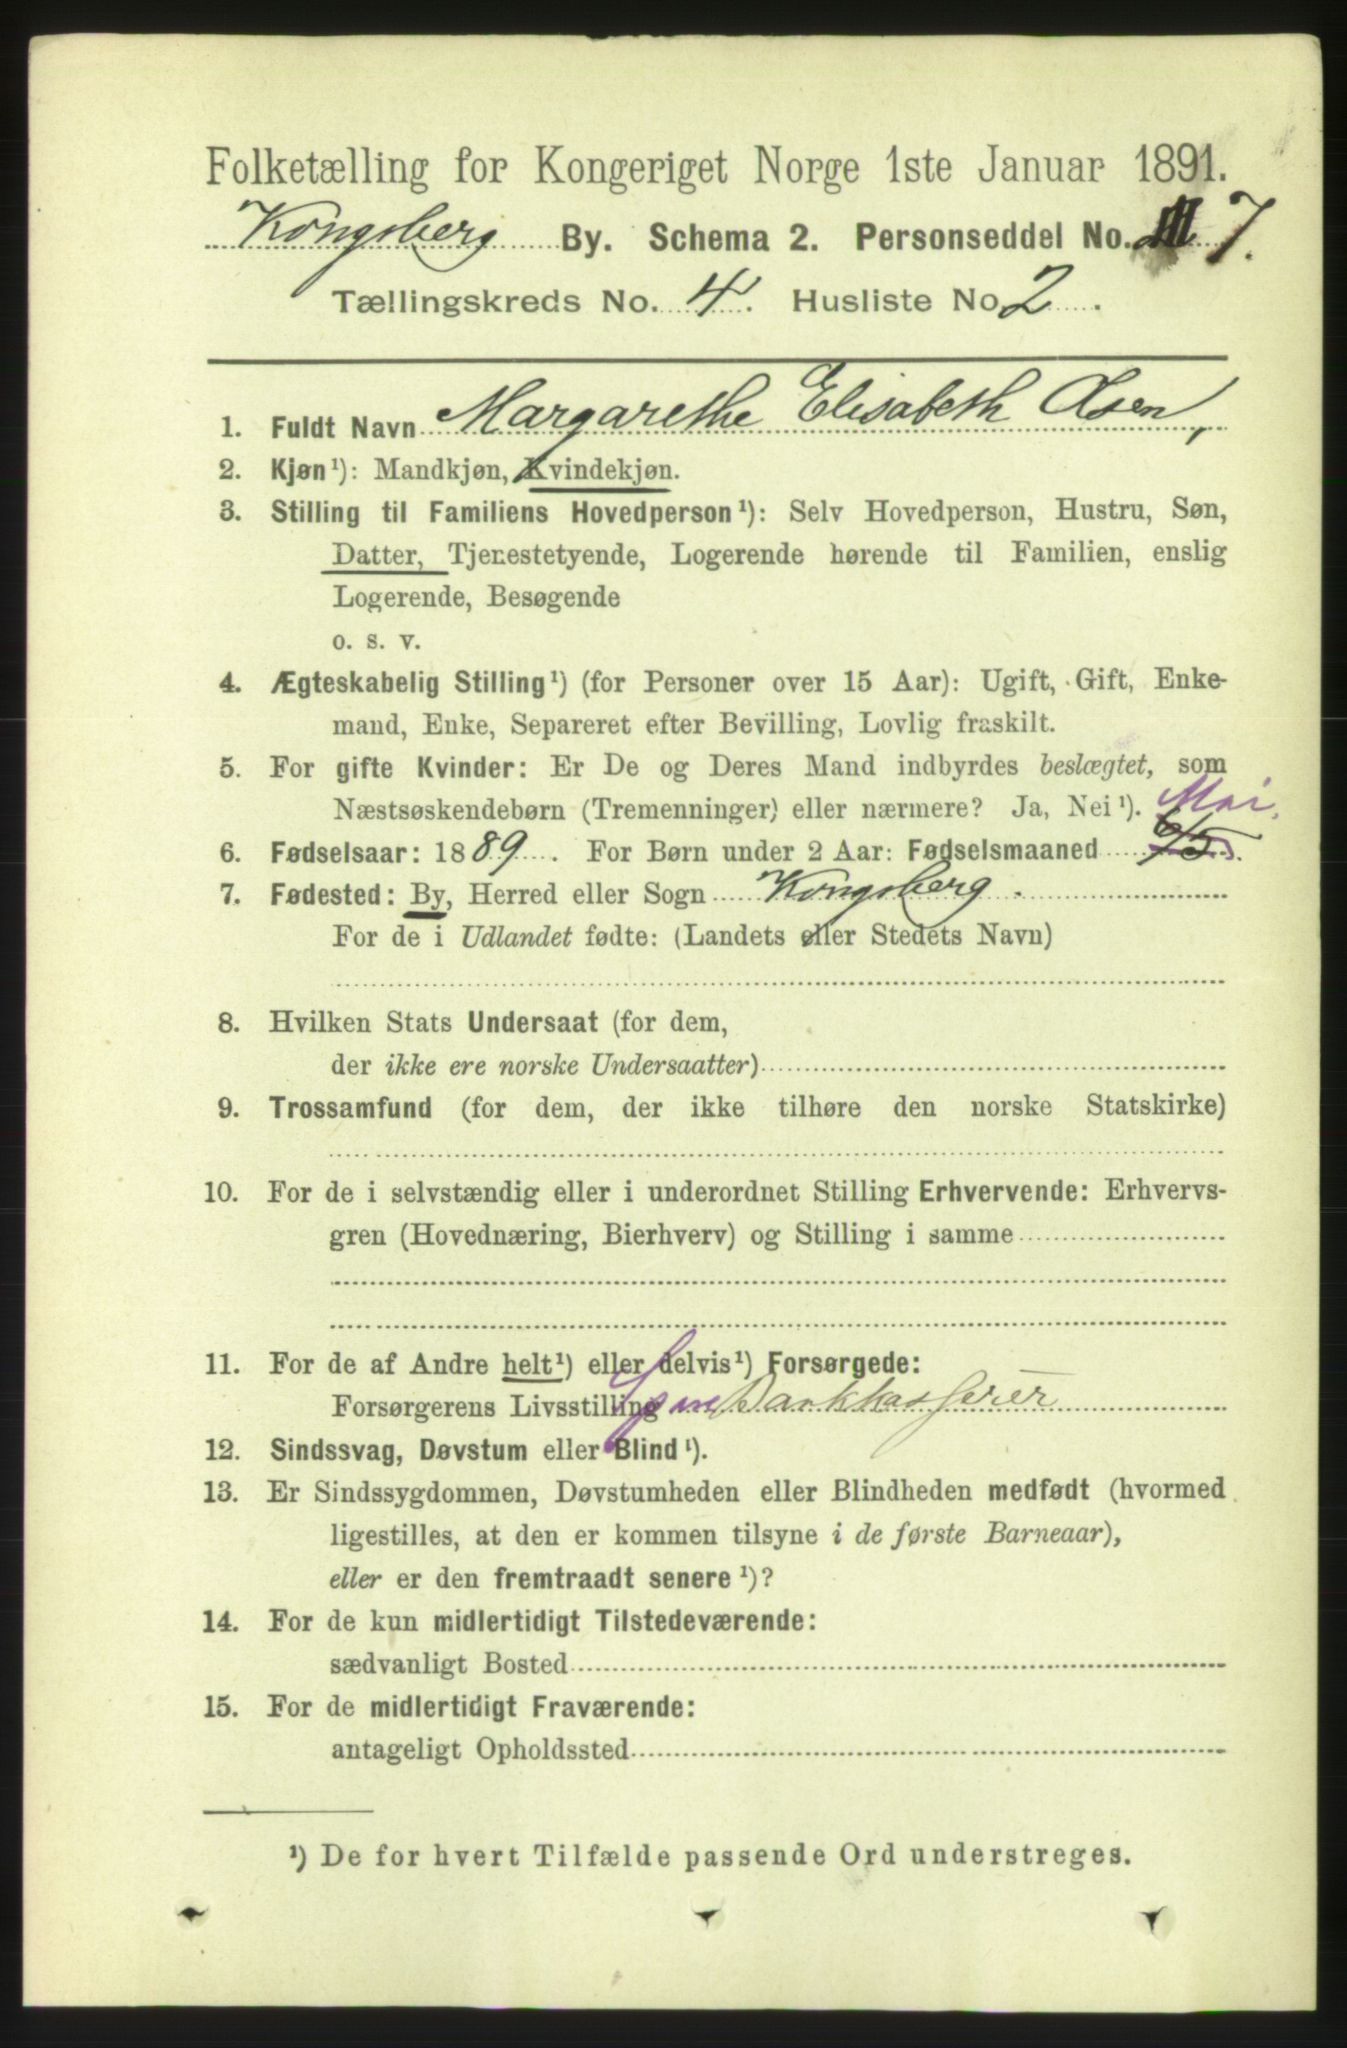 Folketælling for Kongeriget Norge 1ste Januar 1891.
Kongsberg By. Schema 2. Personseddel No. 7.
Tællingskreds No. 4. Husliste No 2.
1. Fuldt Navn Margarethe Elisabeth Åsen,
2. Kjøn ¹): Mandkjøn, Kvindekjøn.
3. Stilling til Familiens Hovedperson ¹): Selv Hovedperson, Hustru, Søn,
Datter, Tjenestetyende, Logerende hørende til Familien, enslig
Logerende, Besøgende
o. s. v.
4. Ægteskabelig Stilling ¹) (for Personer over 15 Aar): Ugift, Gift, Enke-
mand, Enke, Separeret efter Bevilling, Lovlig fraskilt.
5. For gifte Kvinder: Er De og Deres Mand indbyrdes beslægtet, som
Næstsøskendebørn (Tremenninger) eller nærmere? Ja, Nei ¹). Mai.
6. Fødselsaar: 1889. For Børn under 2 Aar: Fødselsmaaned 6/5.
7. Fødested: By, Herred eller Sogn Kongsberg.
For de i Udlandet fødte: (Landets eller Stedets Navn)
8. Hvilken Stats Undersaat (for dem,
der ikke ere norske Undersaatter)
9. Trossamfund (for dem, der ikke tilhøre den norske Statskirke)
10. For de i selvstændig eller i underordnet Stilling Erhvervende: Erhvervs-
gren (Hovednæring, Bierhverv) og Stilling i samme
11. For de af Andre helt ¹) eller delvis ¹) Forsørgede:
Forsørgerens Livsstilling Bankkasserer
12. Sindssvag, Døvstum eller Blind ¹).
13. Er Sindssygdommen, Døvstumheden eller Blindheden medfødt (hvormed
ligestilles, at den er kommen tilsyne i de første Barneaar),
eller er den fremtraadt senere ¹)?
14. For de kun midlertidigt Tilstedeværende:
sædvanligt Bosted
15. For de midlertidigt Fraværende:
antageligt Opholdssted
¹) De for hvert Tilfælde passende Ord understreges.